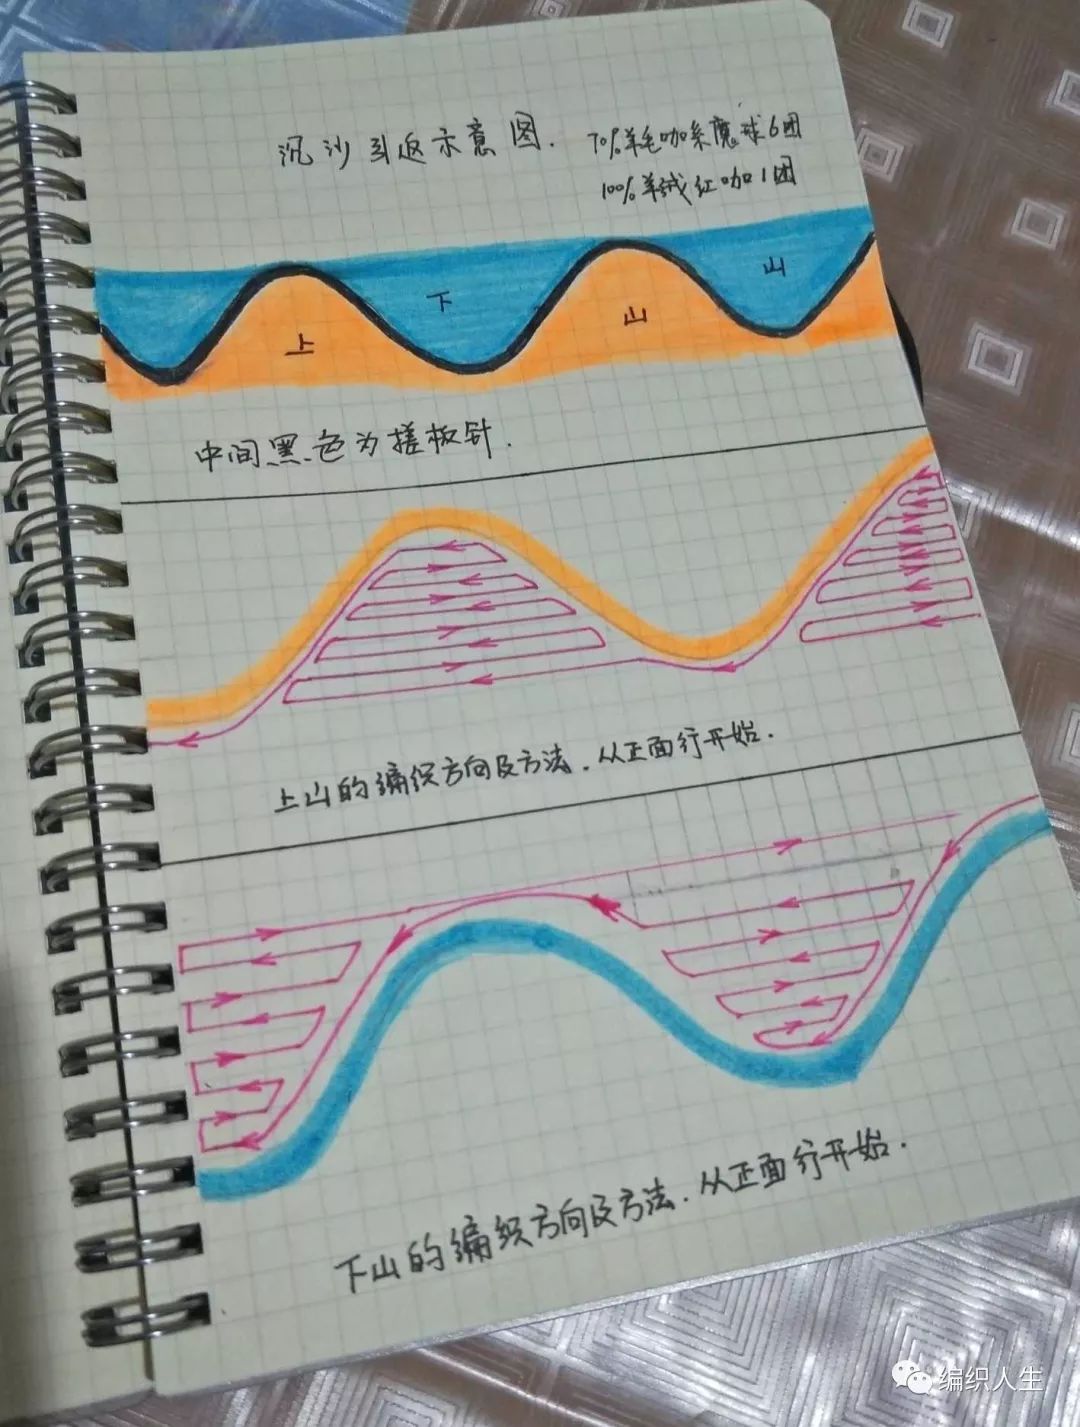 沉沙引返示意图. 70%羊毛咖系魔球6团
100%羊绒红咖1团
下 山
上 山
中间黑色为搓板针.
上山的编织方向及方法.从正面行开始.
下山的编织方向及方法.从正面行开始.
编织人生